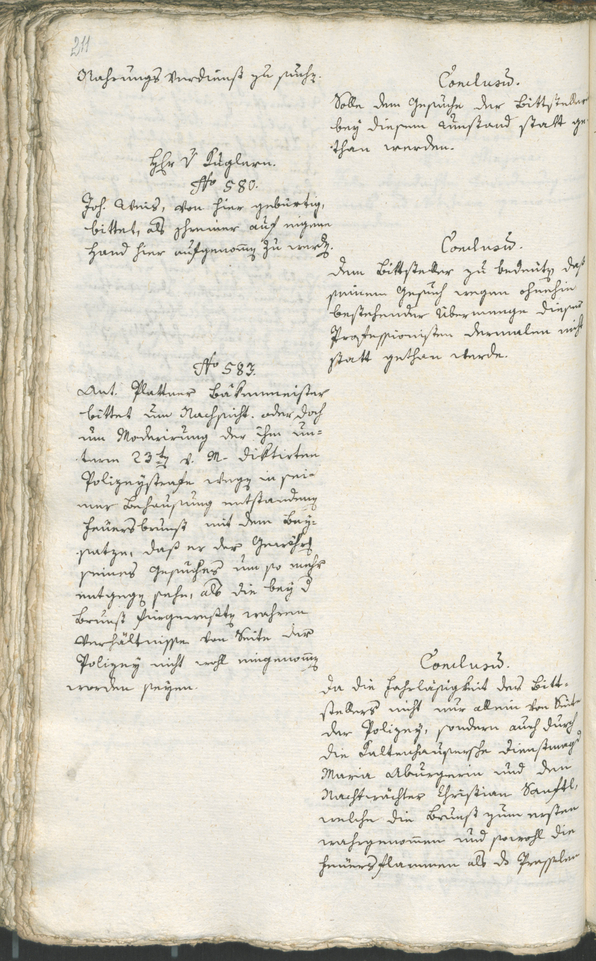 211
Nahrungs Verdienst zu such.
Conclusū.
Solle dem Gesuche der Bittsteller
bey diesem Umstand statt ge
than werden.
Hhr v Kuglern.
No 580.
Joh. Weis, von hier gebürtig,
bittet, als Schreiner auf eigene
Hand hier aufgenom̄ zu werd.
Conclusū.
Dem Bittsteller zu bedeuten, daß
seinem Gesuch wegen ohnehin
bestehender Übermenge dieser
Professionisten dermalen nicht
statt gethan werde.
No 583.
Ant. Plattner Bäkenmeister
bittet um Nachsicht oder doch
um Moderirung der ihm un=
term 23ten v. M. diktirten
Polizeystrafe wegen in sei=
ner Behausung entstandenen
Feuersbrunst mit dem Bey=
satze, daß er der Gewährung
seines Gesuches um so mehr
entgegen sehe, als die bey d
Brunst fürgewesten wahren
Verhältnisse von Seite der
Polizey nicht wohl eingenom̄en
worden seyen.
Conclusū.
Da die Fahrläßigkeit des Bitt=
stellers nicht nur allein von Seite
der Polizey, sondern auch durch
die Kaltenhausersche Dienstmagd
Maria Aburgerin und den
Nachtwächter Christian Sanftl,
welche die Brunst zum ersten
wahrgenommen und sowohl die
Feuersflammen als das Prasseln